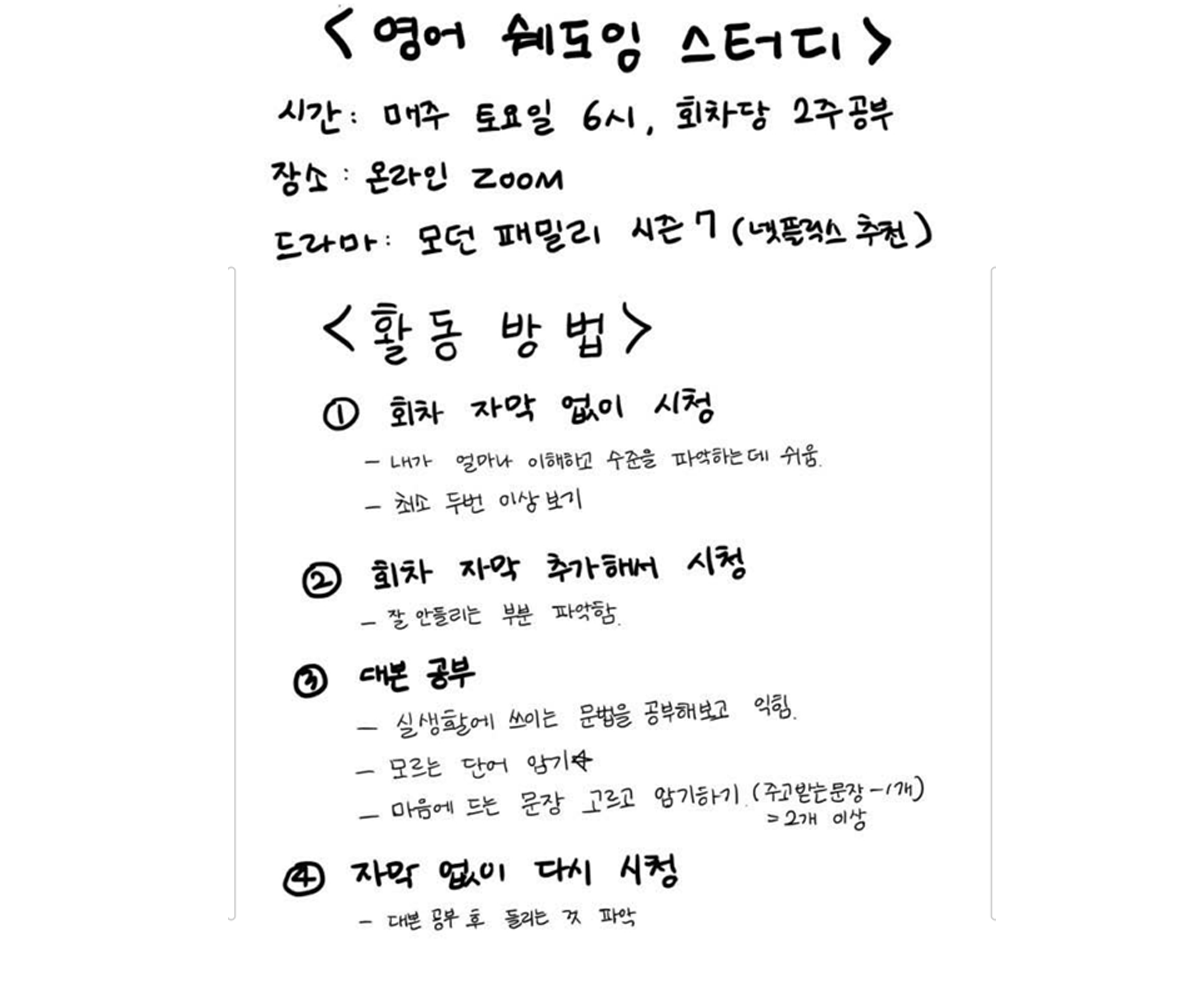 <영어 쉐도잉 스터디>
시간: 매주 토요일 6시, 회차당 2주공부
장소: 온라인 ZOOM
드라마: 모던 패밀리 시즌7 (넷플릭스 추천)
<활동 방법>
① 회차 자막 없이 시청
- 내가 얼마나 이해하고 수준을 파악하는데 쉬움.
- 최소 두번 이상보기
② 회차 자막 추가해서 시청
- 잘 안들리는 부분 파악함.
③ 대본 공부
- 실생활에 쓰이는 문법을 공부해보고 익힘.
- 모르는 단어 암기
- 마음에 드는 문장 고르고 암기하기. (주고받는문장-1개)
=2개 이상
④ 자막 없이 다시 시청
- 대본 공부 후 들리는 것 파악